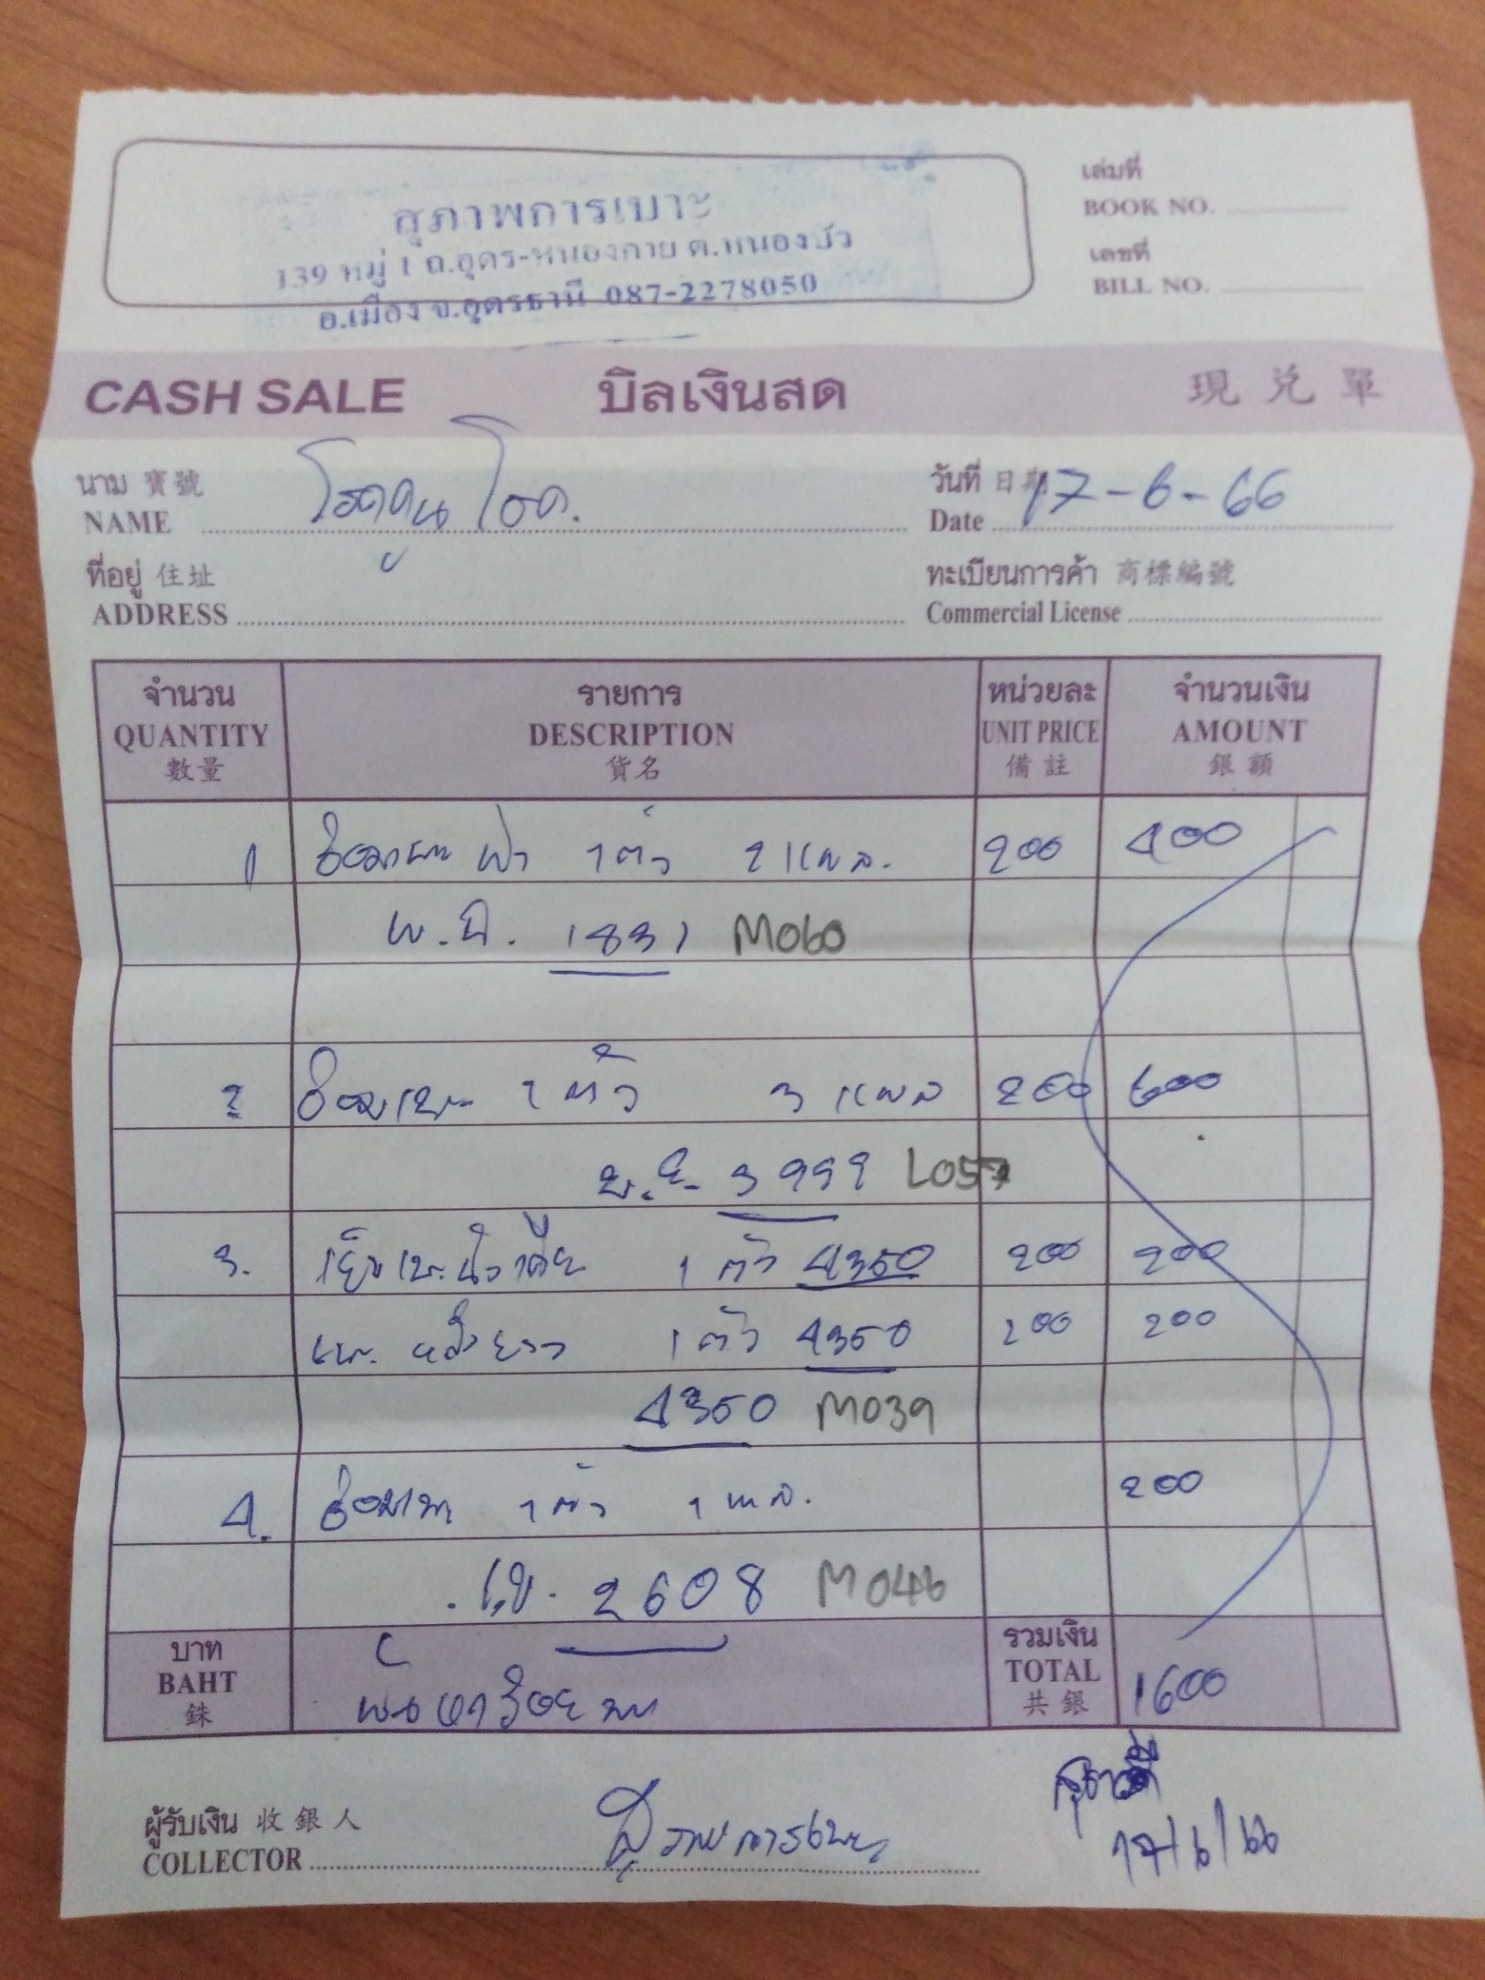 สุภาพการเบาะ
139 หมู่ 1 ถ.อุดร-หนองคาย ต.หนองบัว
อ.เมือง จ.อุดรธานี 087-2278050
เล่มที่
BOOK NO.
เลขที่
BILL NO.
CASH SALE บิลเงินสด 現兌單
นาม 寶號
NAME
วันที่ 日期 17-6-66
Date
ที่อยู่ 住址
ADDRESS
ทะเบียนการค้า 商標編號
Commercial License
จำนวน รายการ หน่วยละ จำนวนเงิน
QUANTITY DESCRIPTION UNIT PRICE AMOUNT
數量 貨名 備註 銀額
1 ซ่อมเบาะ 1 ตัว 2 แผล. 200 400
1831 M060
2 ซ่อมเบาะ 1 ตัว 3 แผล 200 600
3999 L057
3. 1 ตัว 4350 200 200
1 ตัว 4350 200 200
4350 M039
4. ซ่อมเบาะ 1 ตัว 1 แผล. 200
2608 M046
บาท รวมเงิน
BAHT TOTAL 1600
銖 共銀
หนึ่งพันหกร้อยบาท
ผู้รับเงิน 收銀人
COLLECTOR สุภาพการเบาะ
17/6/66